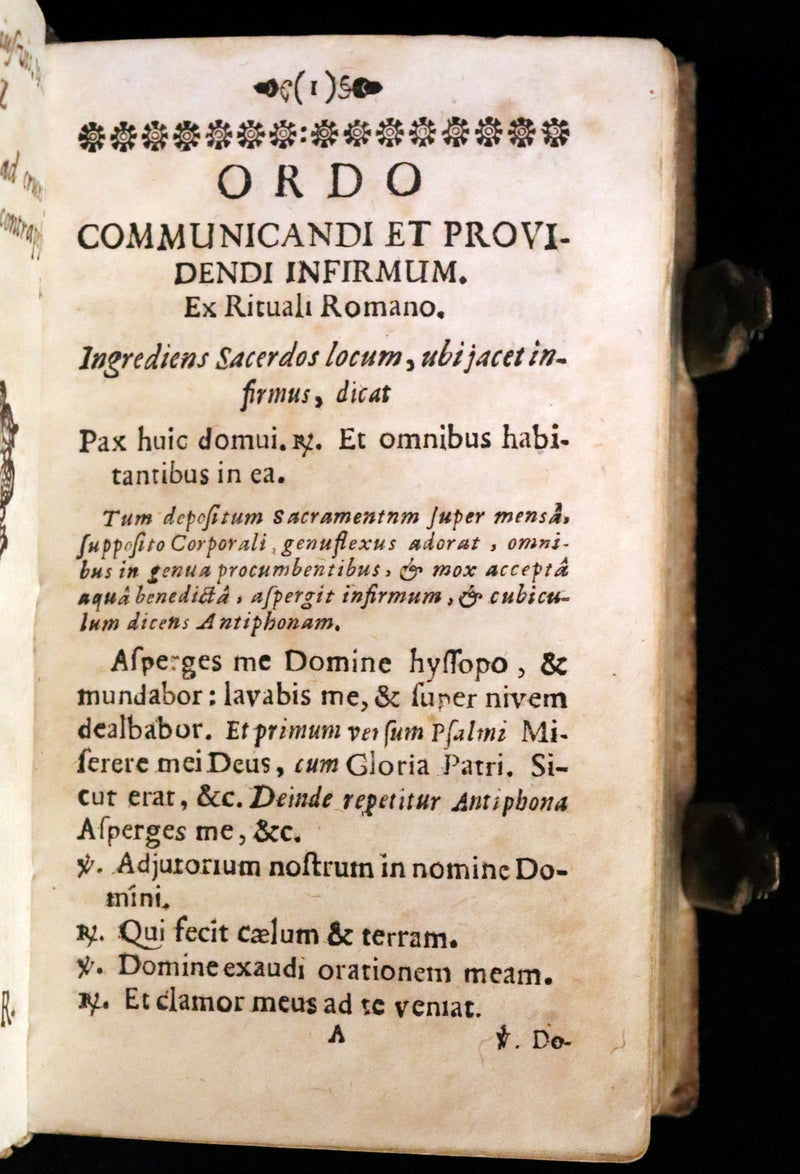 (1)
ORDO
COMMUNICANDI ET PROVI-
DENDI INFIRMUM.
Ex Rituali Romano.
Ingrediens Sacerdos locum, ubi jacet in-
firmus, dicat
Pax huic domui. ℟. Et omnibus habi-
tantibus in ea.
Tum depoſitum Sacramentnm ſuper mensâ,
ſuppoſito Corporali, genuflexus adorat, omni-
bus in genua procumbentibus, & mox acceptâ
aquâ benedictâ, aſpergit infirmum, & cubicu-
lum dicens Antiphonam.
Aſperges me Domine hyſſopo, &
mundabor: lavabis me, & ſuper nivem
dealbabor. Et primum verſum Pſalmi Mi-
ſerere mei Deus, cum Gloria Patri. Si-
cut erat, &c. Deinde repetitur Antiphona
Aſperges me, &c.
℣. Adjutorium noſtrum in nomine Do-
mini.
℟. Qui fecit cælum & terram.
℣. Domine exaudi orationem meam.
℟. Et clamor meus ad te veniat.
A ℣. Do-
ad
R.